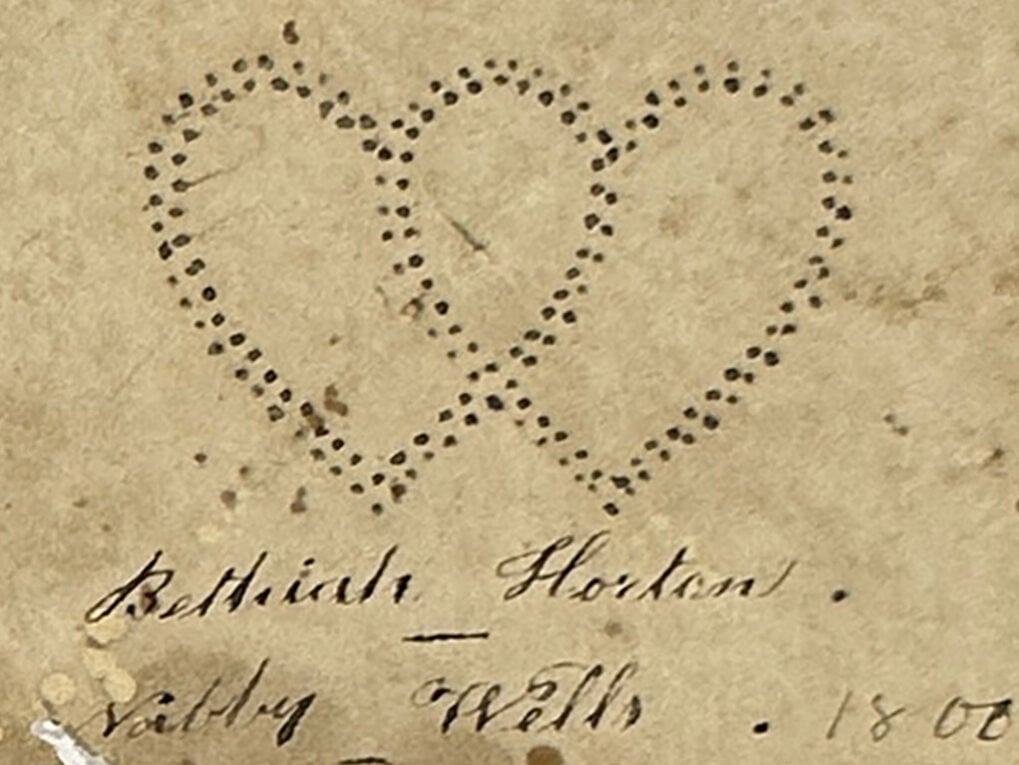 Bethiah Horton .
Nabby Wells . 1800